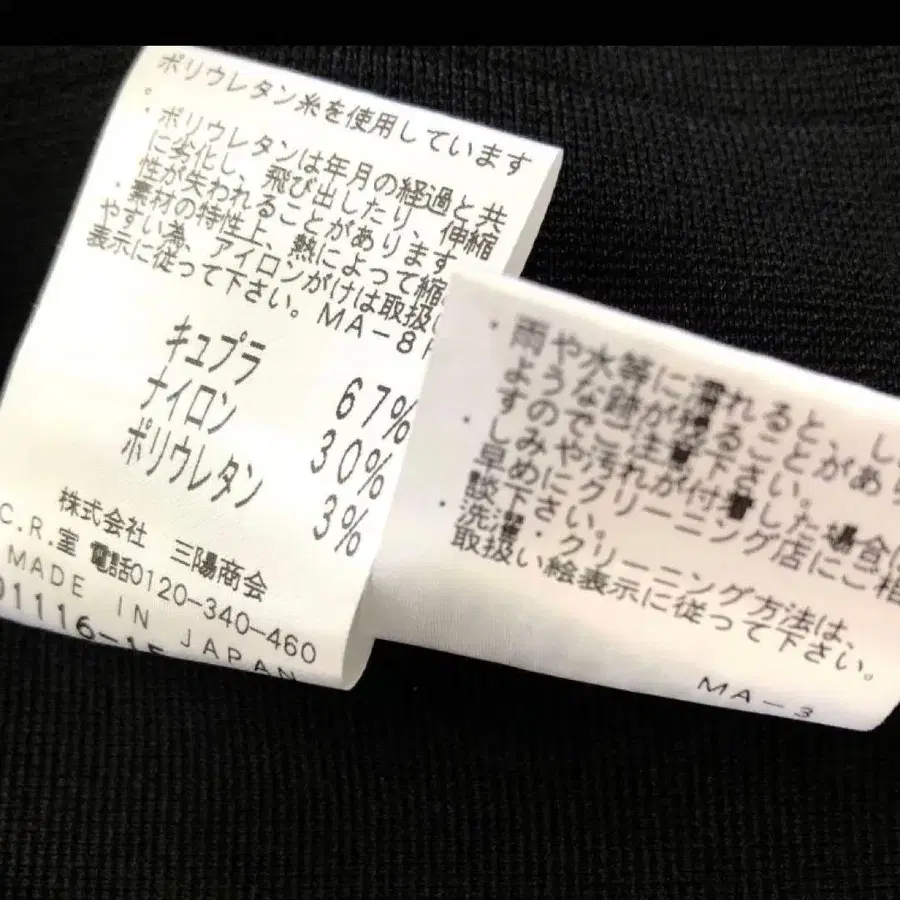 ポリウレタン糸を使用しています
。
・ポリウレタンは年月の経過と共
に劣化し、飛び出したり、伸縮
性が失われることがあります
・素材の特性上、熱によって縮
やすい為、アイロンがけは取扱い
表示に従って下さい。MA-8
キュプラ 67%
ナイロン 30%
ポリウレタン 3%
株式会社 三陽商会
C.R.室 電話0120-340-460
MADE IN JAPAN
01116-15
・雨や水等に濡れると、し
ような跡が残ることがあり
すのでご注意下さい。
・しみや汚れが付着した場合は
早めにクリーニング店にご相
談下さい。
・洗濯・クリーニング方法は、
取扱い絵表示に従って下さい。
MA-3